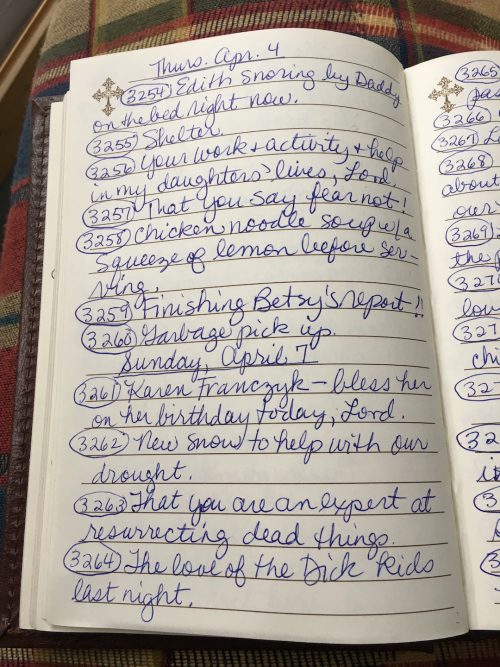 Thurs. Apr. 4
3254 Edith snoring by Daddy
on the bed right now.
3255 Shelter.
3256 Your work + activity + help
in my daughters' lives, Lord.
3257 That you say fear not!
3258 Chicken noodle soup w/a
squeeze of lemon before ser-
ving.
3259 Finishing Betsy's report!!
3260 Garbage pick up.
Sunday, April 7
3261 Karen Franczyk - bless her
on her birthday today, Lord.
3262 New snow to help with our
drought.
3263 That you are an expert at
resurrecting dead things.
3264 The love of the Dick kids
last night.
3265
pas
3266
3267 L
3268
about
our
3269
the p
3270
lou
327
chi
32
32
3
3